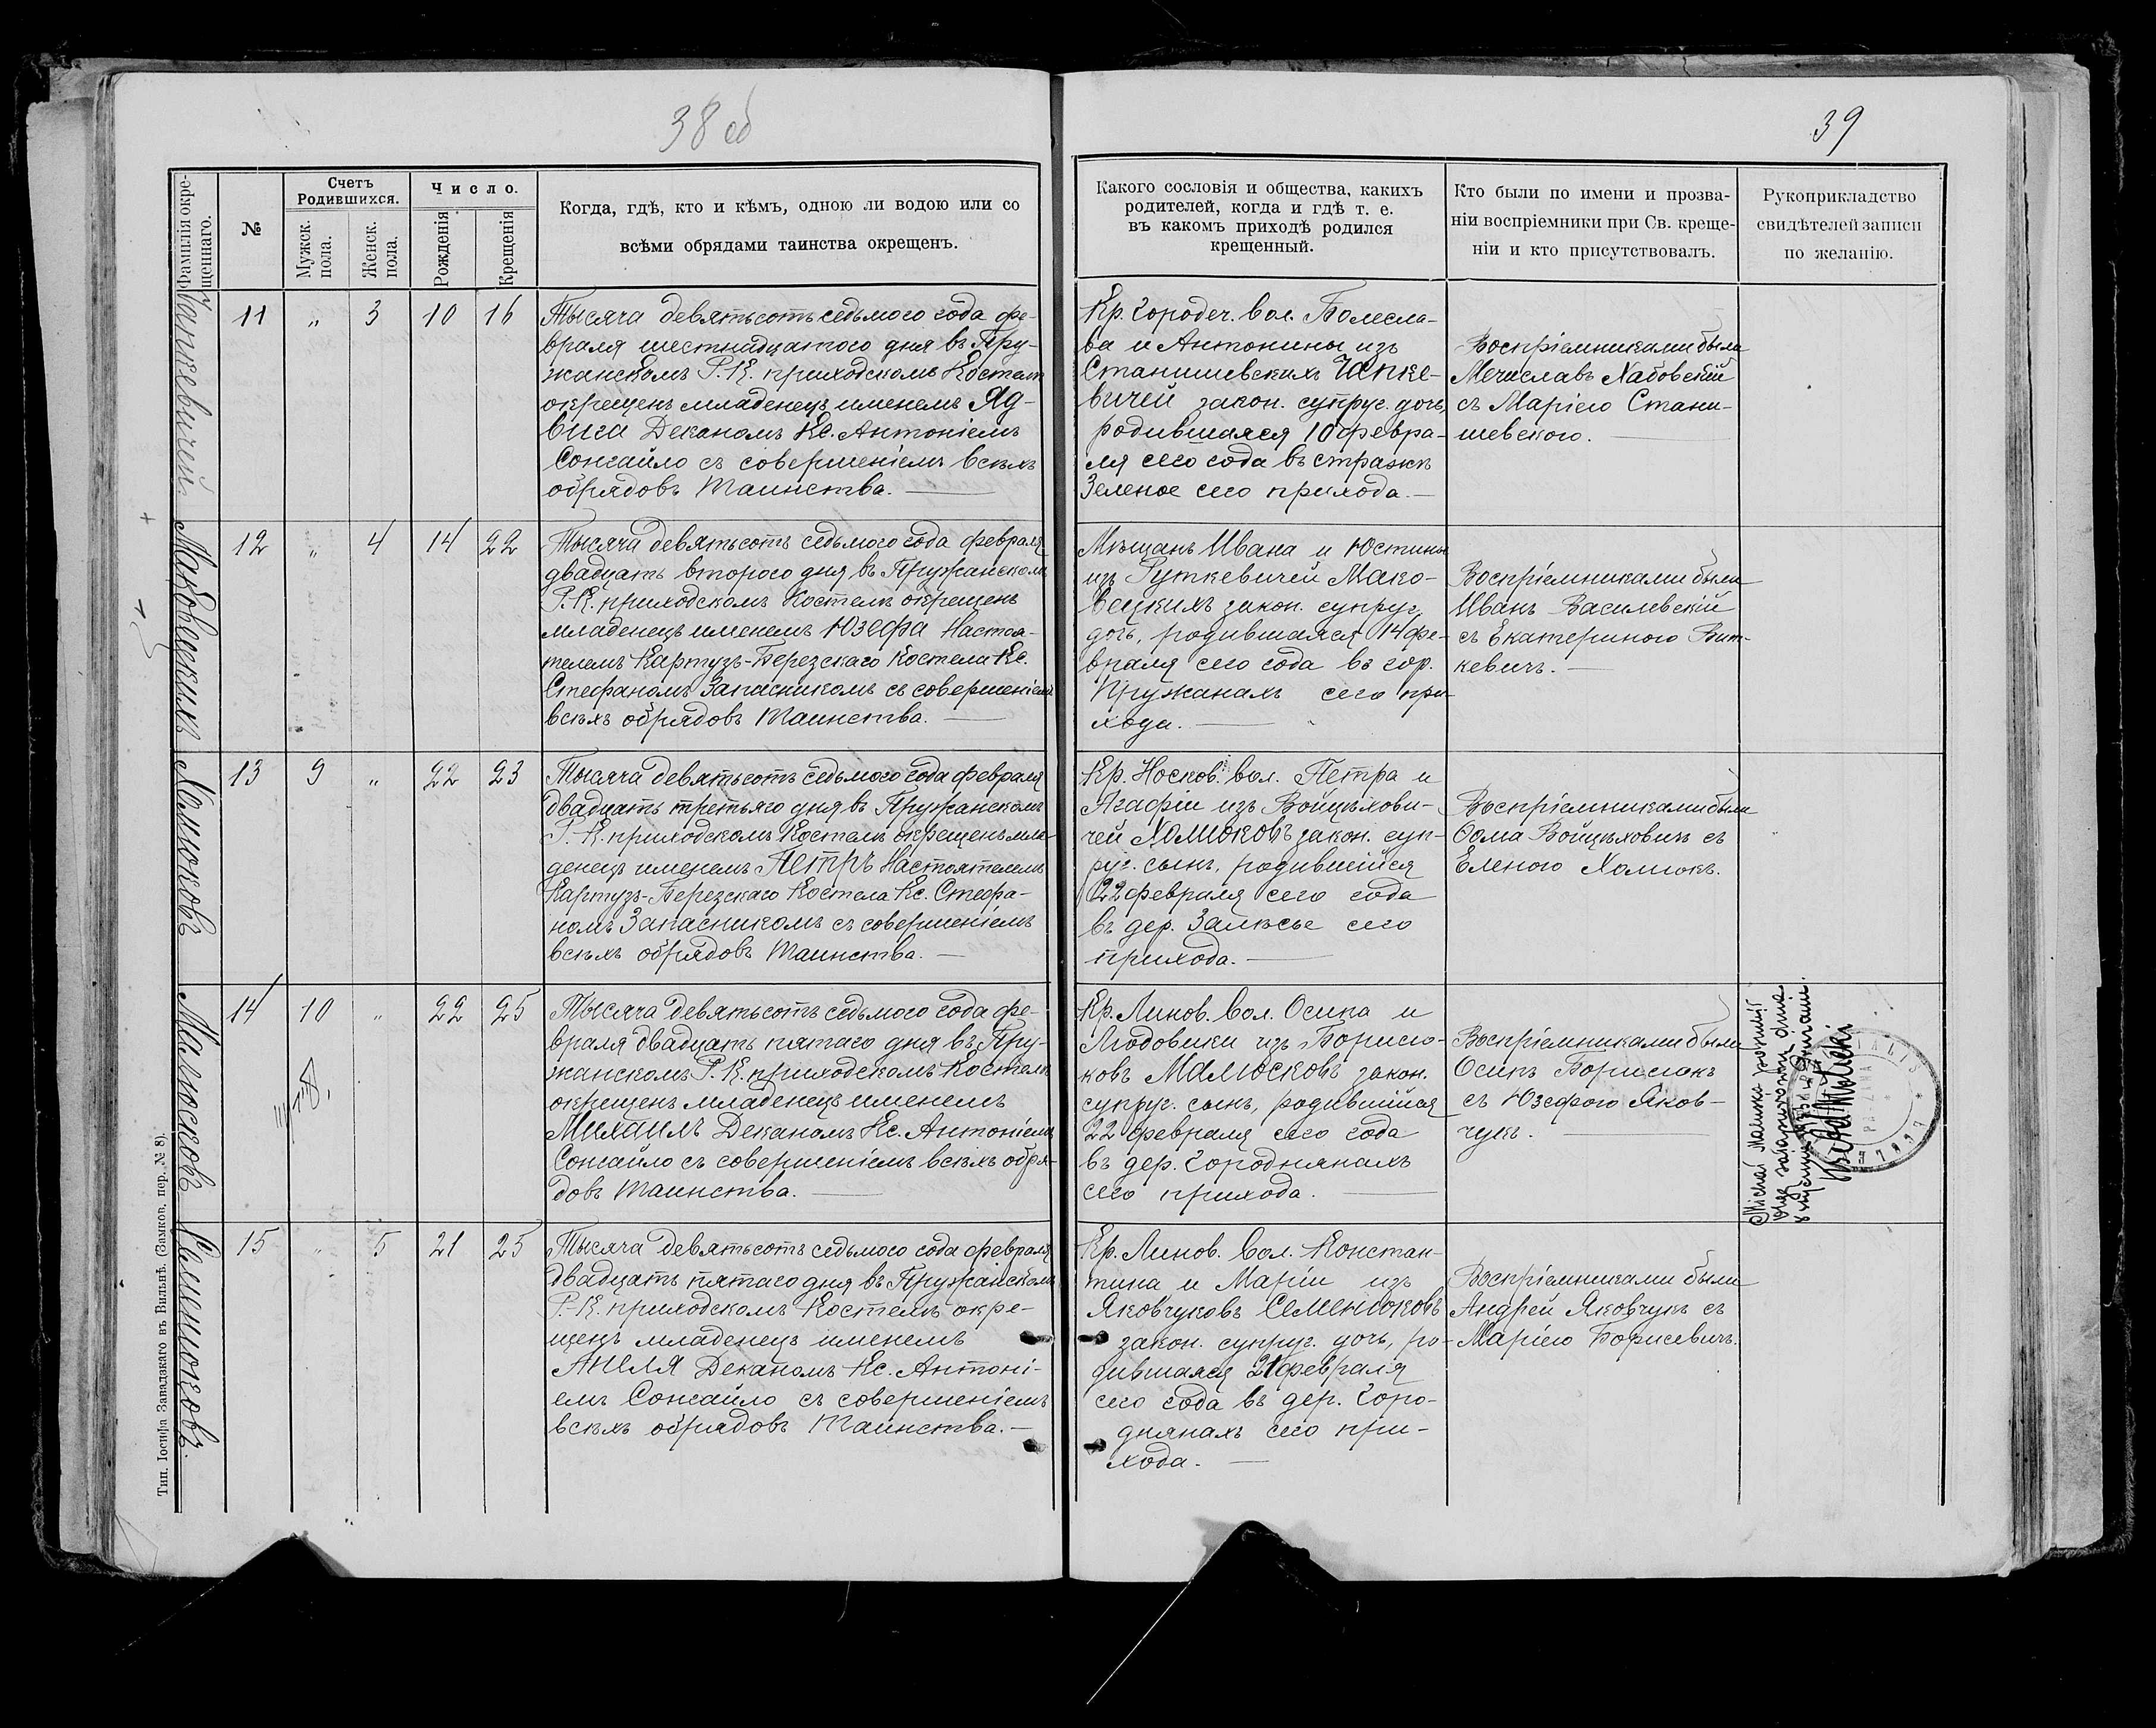 38 об
39
Фамилія окре-
щеннаго.
№
Счетъ
Родившихся.
Мужск.
пола.
Женск.
пола.
Число.
Рожденія
Крещенія
Когда, гдѣ, кто и кѣмъ, одною ли водою или со
всѣми обрядами таинства окрещенъ.
Какого сословія и общества, какихъ
родителей, когда и гдѣ т. е.
въ какомъ приходѣ родился
крещенный.
Кто были по имени и прозва-
ніи воспріемники при Св. креще-
ніи и кто присутствовалъ.
Рукоприкладство
свидѣтелей записи
по желанію.
Чапкевичей.
11 „ 3 10 16
Тысяча девятьсотъ седьмого года фе-
враля шестнадцатого дня въ Пру-
жанскомъ Р. К. приходскомъ Костелѣ
окрещенъ младенецъ именемъ Яд-
вига Деканомъ Кс. Антоніемъ
Сонгайло съ совершеніемъ всѣхъ
обрядовъ Таинства.
Кр. Городеч. вол. Болесла-
ва и Антонины изъ
Станишевскихъ Чапке-
вичей закон. супруг. дочь,
родившаяся 10 февра-
ля сего года въ стражѣ
Зеленое сего прихода.
Воспріемниками были
Мечиславъ Хабовскій
съ Маріею Стани-
шевскою.
Маковецкихъ
12 „ 4 14 22
Тысяча девятьсотъ седьмого года февраля
двадцать второго дня въ Пружанскомъ
Р.-К. приходскомъ Костелѣ окрещенъ
младенецъ именемъ Юзефа Настоя-
телемъ Картузъ-Березскаго Костела Кс.
Стефаномъ Запасникомъ съ совершеніемъ
всѣхъ обрядовъ Таинства.
Мѣщанъ Ивана и Юстины
изъ Руткевичей Мако-
вецкихъ закон. супруг.
дочь, родившаяся 14 фе-
враля сего года въ гор.
Пружанахъ сего при-
хода.
Воспріемниками были
Иванъ Василевскій
съ Екатериною Вит-
кевичъ.
Холмоковъ
13 9 „ 22 23
Тысяча девятьсотъ седьмого года февраля
двадцать третьяго дня въ Пружанскомъ
Р.-К. приходскомъ Костелѣ окрещенъ мла-
денецъ именемъ Петръ Настоятелемъ
Картузъ-Березскаго Костела Кс. Стефа-
номъ Запасникомъ съ совершеніемъ
всѣхъ обрядовъ Таинства.
Кр. Носков. вол. Петра и
Агафіи изъ Войцѣхови-
чей закон. суп-
руг. сынъ, родившійся
22 февраля сего года
въ дер. Залѣсье сего
прихода.
Воспріемниками были
Ѳома Войцѣховичъ съ
Еленою
Малюсковъ
14 10 „ 22 25
Тысяча девятьсотъ седьмого года фе-
враля двадцать пятаго дня въ Пру-
жанскомъ Р. К. приходскомъ Костелѣ
окрещенъ младенецъ именемъ
Михаилъ Деканомъ Кс. Антоніемъ
Сонгайло съ совершеніемъ всѣхъ обря-
довъ Таинства.
Кр. Линов. вол. Осипа и
Людовики изъ Борисю-
ковъ Малюсковъ закон.
супруг. сынъ, родившійся
22 февраля сего года
въ дер. Городнянахъ
сего прихода.
Воспріемниками были
Осипъ Борисюкъ
съ Юзефою Яков-
чукъ.
Michał
Семенюковъ.
15 „ 5 21 25
Тысяча девятьсотъ седьмого года февраля
двадцать пятаго дня въ Пружанскомъ
Р.-К. приходскомъ Костелѣ окре-
щенъ младенецъ именемъ
Анеля Деканомъ Кс. Антоні-
емъ Сонгайло съ совершеніемъ
всѣхъ обрядовъ Таинства.
Кр. Линов. вол. Констан-
тина и Маріи изъ
Яковчуковъ Семенюковъ
закон. супруг. дочь, ро-
дившаяся 21 февраля
сего года въ дер. Горо-
днянахъ сего при-
хода.
Воспріемниками были
Андрей Яковчукъ съ
Маріею Борисевичъ.
Тип. Іосифа Завадзкаго въ Вильнѣ. (Замков. пер. № 8).